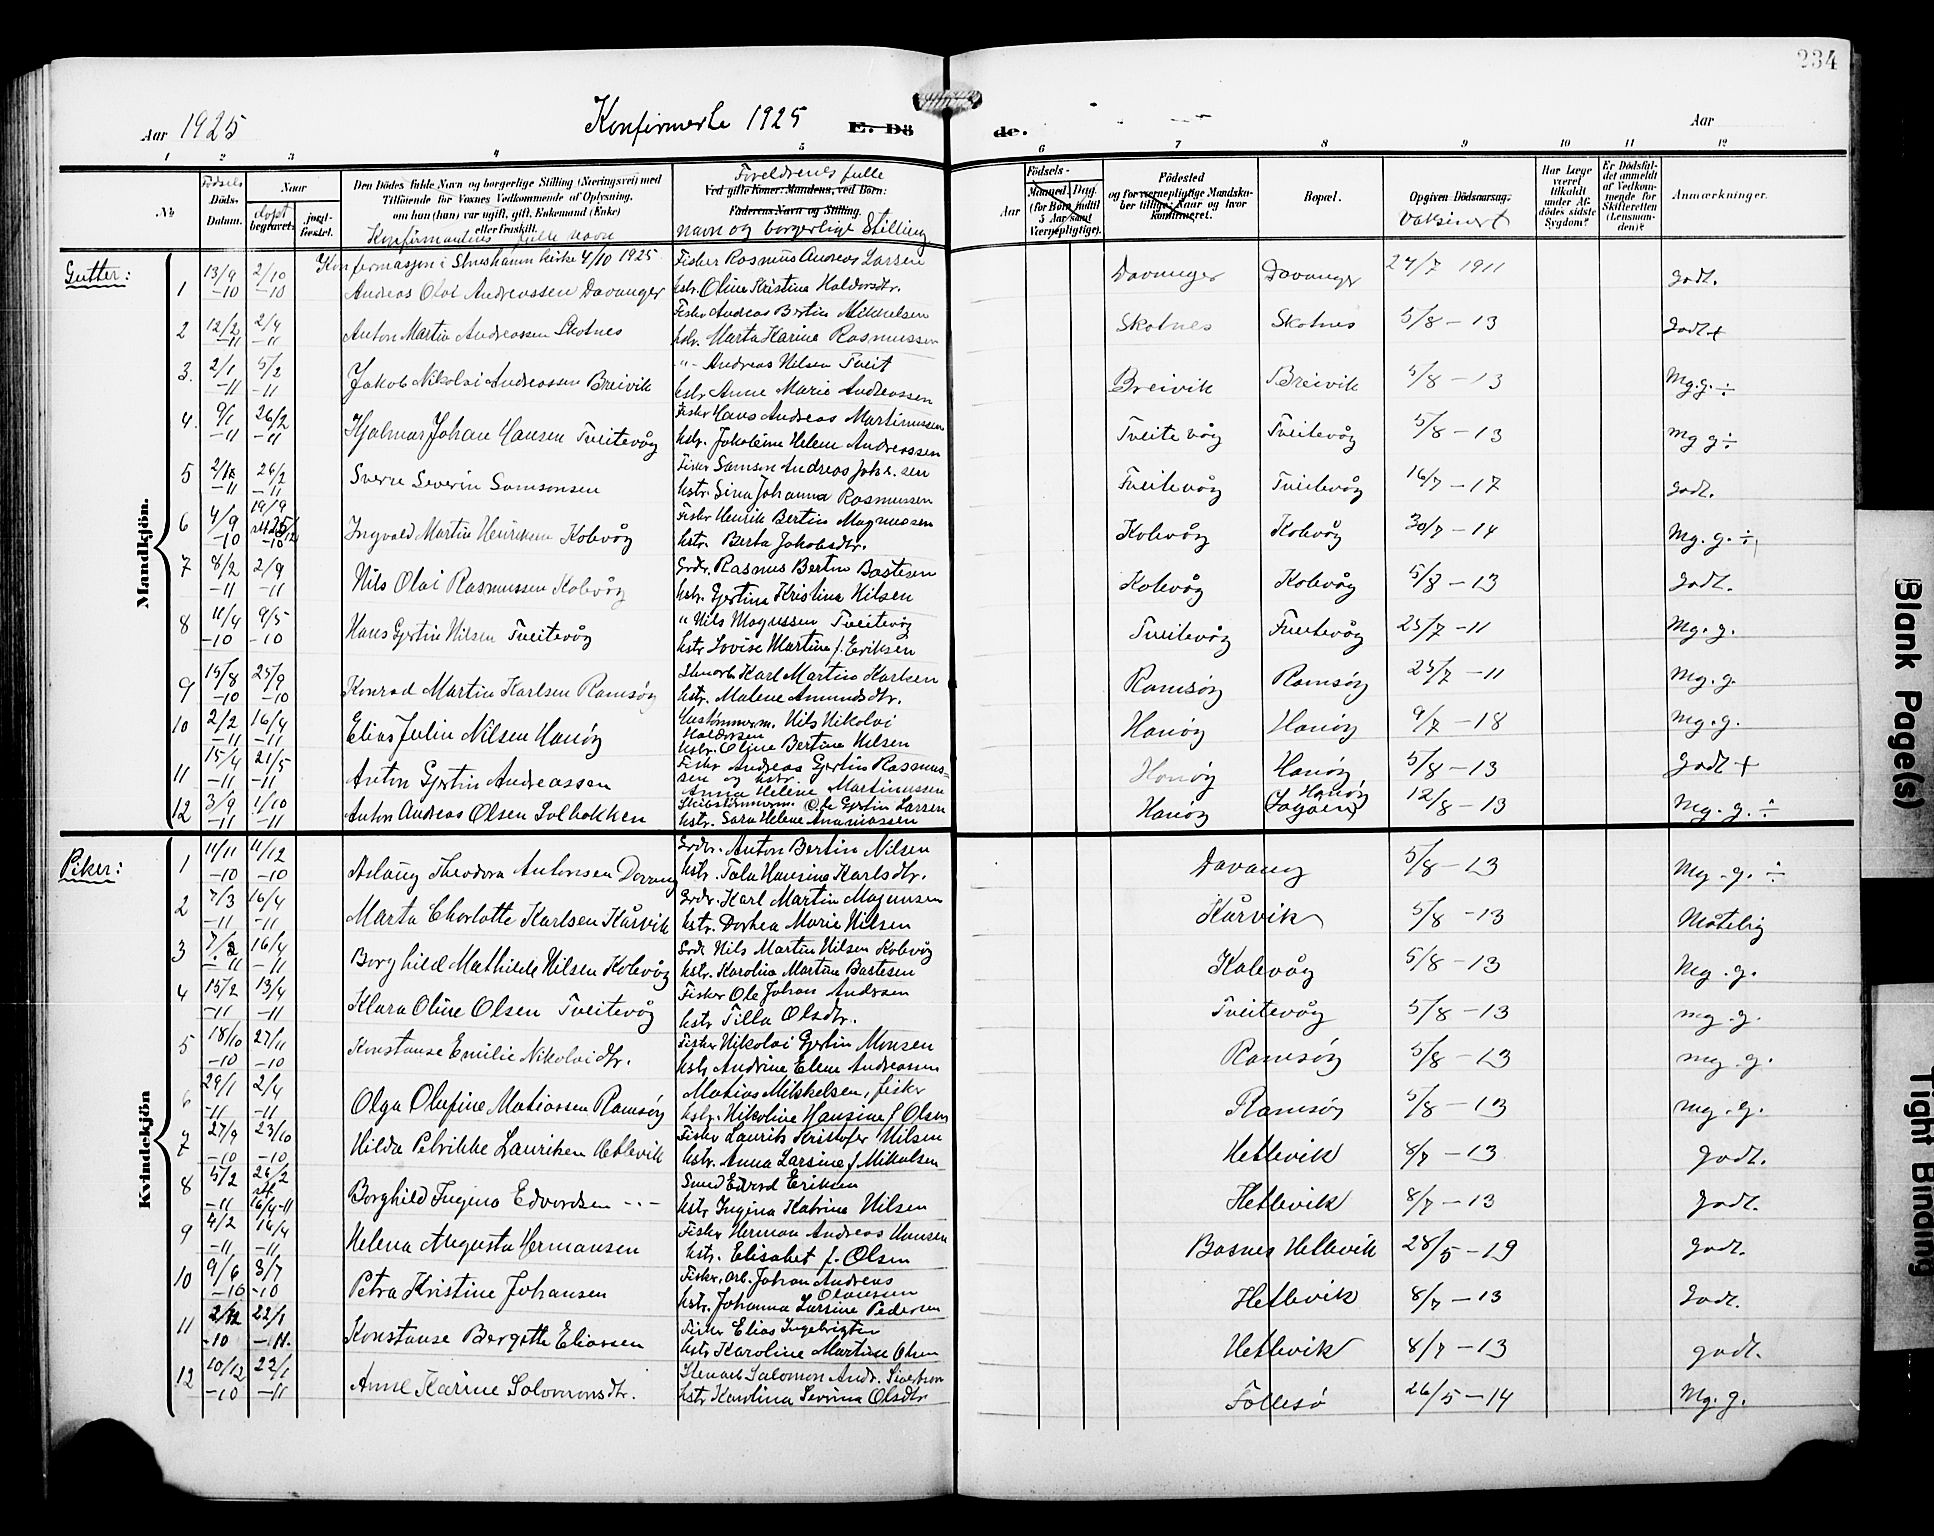 234
Aar 1925
Konfirmerte 1925
E. Dö
de.
Aar
1 2 3 4 5 6 7 8 9 10 11 12
No
Fødsels
Døds-
Datum.
Naar
døpt
begravet.
jord-
festet.
Den Dödes fulde Navn og borgerlige Stilling (Næringsvei) med
Tilføiende for Voxnes Vedkommende af Oplysning,
om han (hun) var ugift, gift, Enkemand (Enke)
eller fraskilt.
Konfirmantens fulle navn
Foreldrenes fulle
Ved gifte Koner: Mandens, ved Börn:
Faderens Navn og Stilling.
navn og borgerlige Stilling
Aar
Fødsels-
Maaned, Dag
(for Børn indtil
5 Aar samt
Værnepligtige).
Födested
og for værnepligtige Mandska-
ber tillige: Naar og hvor
konfirmeret.
Bopæl.
Opgiven Dödsaarsag.
Vaksinert
Har Læge
været
tilkaldt
under Af-
dødes sidste
Sygdom?
Er Dödsfal-
det anmeldt
af Vedkom-
mende for
Skifteretten
(Lensman-
den)?
Anmærkninger.
Gutter:
Mandkjön.
Konfirmasjon i Strushamn kirke 4/10 1925
1 13/9 -10 2/10 -10 Andreas Olai Andreassen Davanger Fisker Rasmus Andreas Larsen
hstr. Oline Kristine Haldorsdtr. Davanger Davanger 24/7 1911 godt.
2 12/2 -11 2/4 -11 Anton Martin Andreassen Skotnes Fisker Andreas Bertin Mikkelsen
hstr. Marta Karine Rasmussen Skotnes Skotnes 5/8 - 13 godt +
3. 2/1 -11 5/2 -11 Jakob Nikolai Andreassen Breivik " - Andreas Nilsen Tveit
hstr. Anne Marie Andreassen Breivik Breivik 5/8 - 13 Mg.g. ÷
4. 9/1 -11 26/2 -11 Hjalmar Johan Hansen Tveitevåg Fisker Hans Andreas Martinussen
hstr. Jakobine Helene Andreassen Tveitevåg Tveitevåg 5/8 - 13 Mg g ÷
5 -11 26/2 -11 Sverre Severin Samsonsen Fisker Samson Andreas Joh. sen
hstr. Sina Johanna Rasmussen Tveitevåg Tveitevåg 16/7 - 17 godt.
6 4/9 -10 19/9 -10 Ingvald Martin Henriksen Kolevåg Fisker Henrik Bertin Magnussen
hstr. Berta Jakobsdtr. Kolevåg Kolevåg 30/7 - 14 Mg. g. ÷
7 8/2 -11 2/9 -11 Nils Olai Rasmussen Kolevåg Grdr. Rasmus Bertin Bastesen
hstr. Gjertina Kristina Nilsen Kolevåg Kolevåg 5/8 - 13 godt.
8 11/4 -10 9/5 -10 Hans Gjertin Nilsen Tveitevåg " Nils Magnussen Tveitevåg
hstr Lovise Martine f. Eriksen Tveitevåg Tveitevåg 25/7 - 11 Mg. g.
9 15/8 -10 25/9 -10 Konrad Martin Karlsen Ramsöy Stenarb. Karl Martin Karlsen
hstr. Malene Amundsdtr. Ramsöy Ramsöy 25/7 - 11 Mg. g.
10 2/2 -11 16/4 -11 Elias Julin Nilsen Hanöy Hustömmerm. Nils Nikolai
Haldorsen
hstr. Oline Bertine Nilsen Hanöy Hanöy 9/7 - 18 Mg. g.
11 15/4 -11 21/5 -11 Anton Gjertin Andreassen Fisker Andreas Gjertin Rasmus-
sen og hstr.
Anna Helene Martinussen Hanöy Hanöy 5/8 - 13 godt +
12 3/9 -11 1/10 -11 Anton Andreas Olsen Solbakken Skibstömmerm. Ole Gjertin Larsen
hstr. Sara Helene Ananiassen Hanöy Hanöy 12/8 - 13 Mg. g. ÷
Piker:
Kvindekjön
1 11/11 -10 11/12 -10 Aslaug Theodora Antonsen Davang Grdr. Anton Bertin Nilsen
hstr. Tala Hansine Karlsdtr. Davang 5/8 - 13 Mg. g. ÷
2 7/3 -11 16/4 -11 Marta Charlotte Karlsen Kårvik Grdr. Karl Martin Magnusen
hstr. Dorhea Marie Nilsen Kårvik 5/8 - 13 Måtelig
3 -11 16/4 -11 Borghild Mathilde Nilsen Kolevåg Grdr Nils Martin Nilsen Kolevåg
hstr. Karolina Martine Bastesen Kolevåg 5/8 - 13 Mg. g.
4 15/2 -11 13/4 -11 Klara Oline Olsen Tveitevåg Fisker Ole Johan Andersen
hstr Tilla Olsdtr. Tveitevåg 5/8 - 13 mg. g.
5 18/10 -10 27/11 -10 Konstanse Emilie Nikolaidtr. Fisker Nikolai Gjertin Monsen
hstr Andrine Elene Andreassen Ramsöy 5/8 - 13 mg. g.
6 29/1 -11 2/4 -11 Olga Olufine Matiassen Ramsöy Matias Mikkelsen, fisker
hstr. Nikoline Hansine f Olsen Ramsöy 5/8 - 13 mg. g.
7 27/9 -10 23/10 -10 Hilda Petrikke Lauritsen Hetlevik Fisker Laurits Kristofer Nilsen
hstr. Anna Larsine f Mikalsen Hetlevik 8/7 - 13 Godt.
8 5/2 -11 26/2 stf. 16/4-11 Borghild Ingina Edvardsen - " - Smed Edvard Eriksen
hstr Ingina Katrine Nilsen Hetlevik 8/7 - 13 Godt.
9 4/2 -11 16/4 -11 Helena Augusta Hermansen Fisker Herman Andreas Hansen
hstr. Elisabet f. Olsen Basnes Hetlevik 28/5 - 19 Godt.
10 9/6 -10 3/7 -10 Petra Kristine Johansen Fisker, arb. Johan Andreas
Olaussen
hstr. Johanna Larsine Pedersen Hetlevik 8/7 - 13 Godt.
11 2/12 -10 22/1 -11. Konstanse Bergitte Eliassen Fisker Elias Ingebrigtsen
hstr Karoline Martine Olsen Hetlevik 8/7 - 13 godt.
12 10/12 -10 22/1 -11 Anne Karine Salomonsdtr. Stenarb Salomon Andr. Sivertsen
hstr Karolina Severine Olsdtr Follesö 26/5 - 14 Mg. g.
Blank Page(s)
Tight Binding